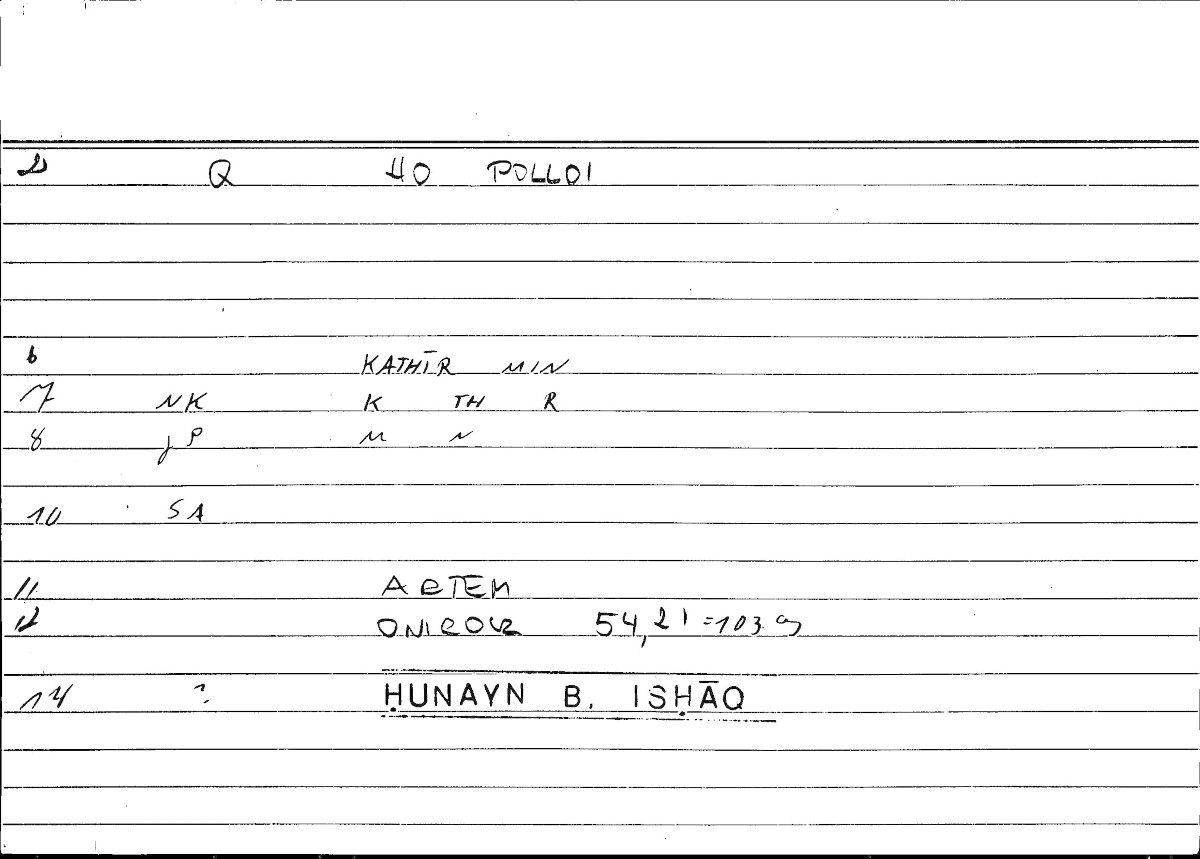 2 Q HO POLLOI
6 KATHĪR MIN
7 NK K TH R
8 JP M N
10 SA
11 ARTEM
12 ONIROCR 54,21 =103.9
14 ? ḤUNAYN B. ISḤĀQ